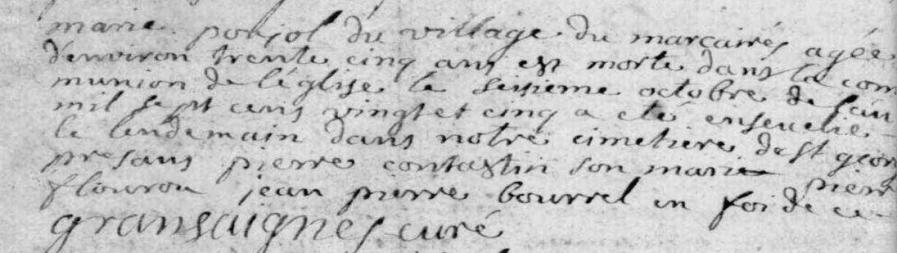 marie poujol du village du marcairés agée
d'environ trente cinq ans est morte dans la com
munion de l'églize le seisieme octobre de l'an
mil sept cens vingt et cinq a eté ensevelie
le lendemain dans notre cimetiere de st georg
presans pierre contastin son marie pierr
flourou jean pierre bourrel en foi de ce
gransaignes curé